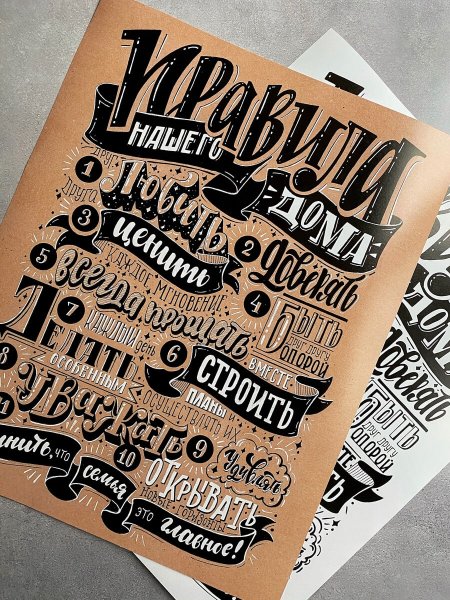 Правила
нашего
дома
1 Любить
друг
друга
2 Доверять
3 ценить
каждое мгновение
4 Быть
друг другу
опорой
5 всегда прощать
6 Строить
вместе
планы
осуществлять их
7 Делать
каждый день
особенным
8 Уважать
9 Удивлять
10 Открывать
новые горизонты
11 что
семья
это главное!
Доверять
Быть
друг другу
опорой